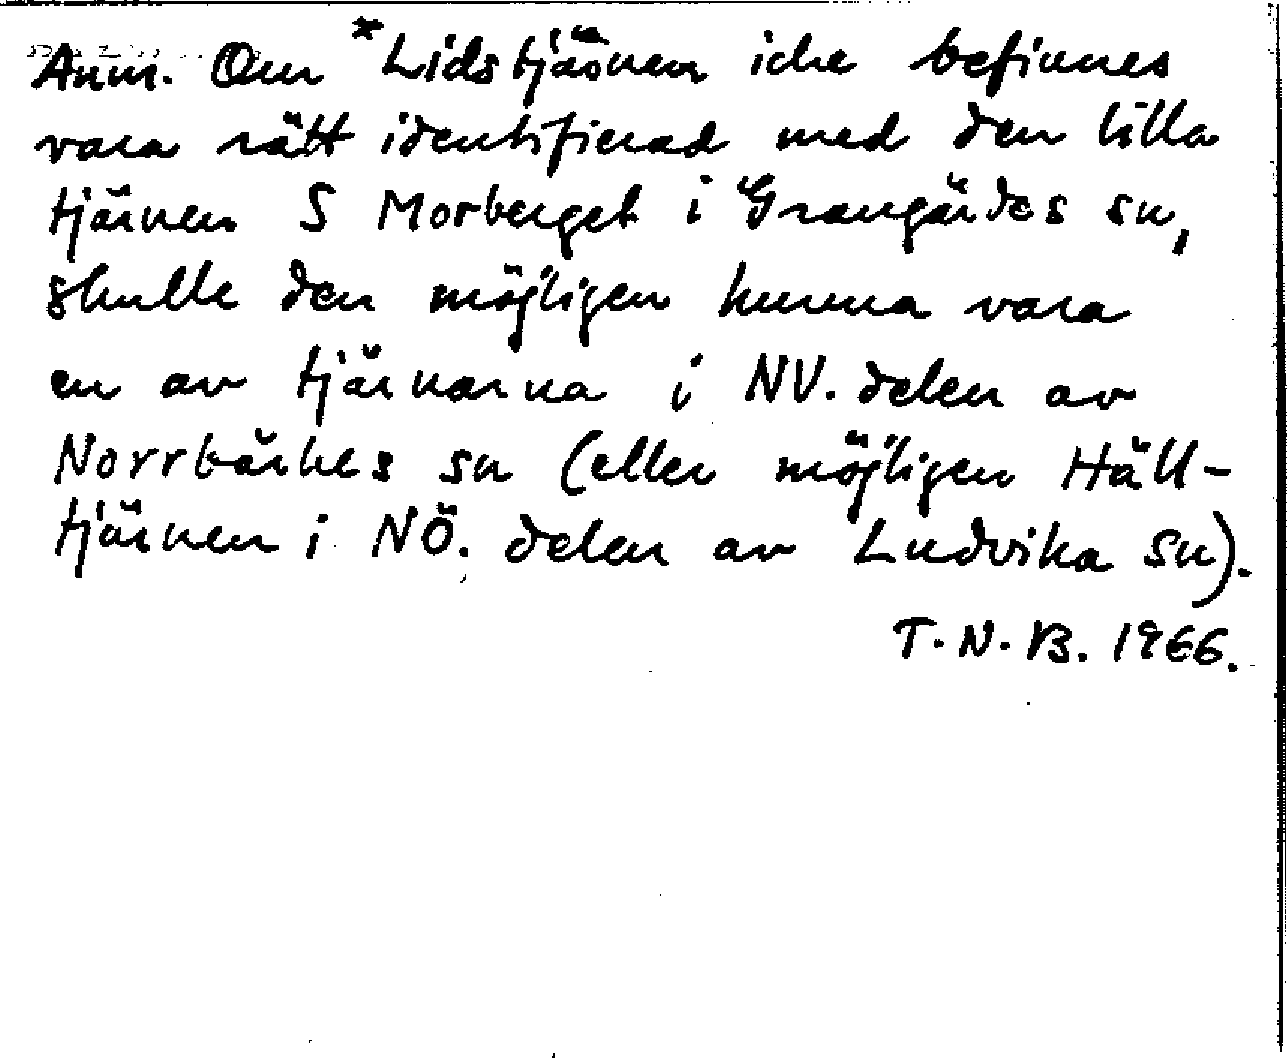 Anm. Om *Lidstjärnen icke befinnes
vara rätt identifierad med den lilla
tjärnen S Morberget i Grangärdes sn,
skulle den möjligen kunna vara
en av tjärnarna i NV. delen av
Norrbärkes sn (eller möjligen Häll-
tjärnen i NÖ. delen av Ludvika sn).
T.N.B. 1966.